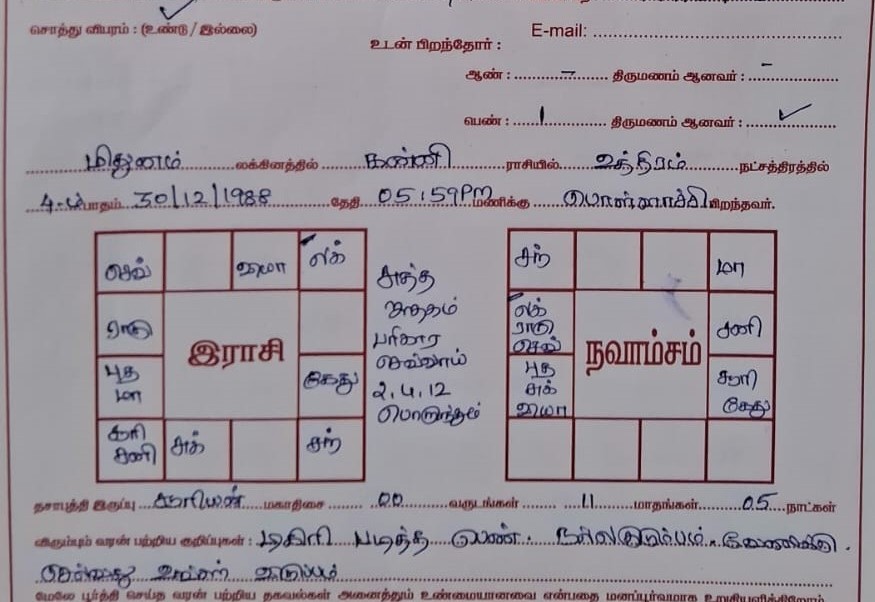 சொத்து விபரம் : (உண்டு / இல்லை)
உடன் பிறந்தோர் : E-mail: ........................................
ஆண் : ......–......... திருமணம் ஆனவர் : ...–...............
பெண் : .....1.......... திருமணம் ஆனவர் : .....✓.............
மிதுனம் லக்கினத்தில் கன்னி ராசியில் உத்திரம் நட்சத்திரத்தில்
4-ம் பாதம் 30/12/1988 தேதி 05:59PM மணிக்கு பொள்ளாச்சி பிறந்தவர்.
செவ் வியா லக்
ராகு
புத
மா
கேது
சூரி
சனி
சுக்
சந்
இராசி
சுத்த
ஜாதகம்
பரிகார
செவ்வாய்
2.4.12
பொருந்தும்
சந் மா
லக்
ராகு
செவ்
சனி
புத
சுக்
வியா
சூரி
கேது
நவாம்சம்
தசாபுத்தி இருப்பு சூரியன் மகாதிசை 00 வருடங்கள் 11 மாதங்கள் 05 நாட்கள்
விரும்பும் வரன் பற்றிய குறிப்புகள் : டிகிரி படித்த பெண். நல்லகுடும்பம்.
விருப்பம்
மேலே பூர்த்தி செய்த வரன் பற்றிய தகவல்கள் அனைத்தும் உண்மையானவை என்பதை மனப்பூர்வமாக உறுதியளிக்கிறோம்